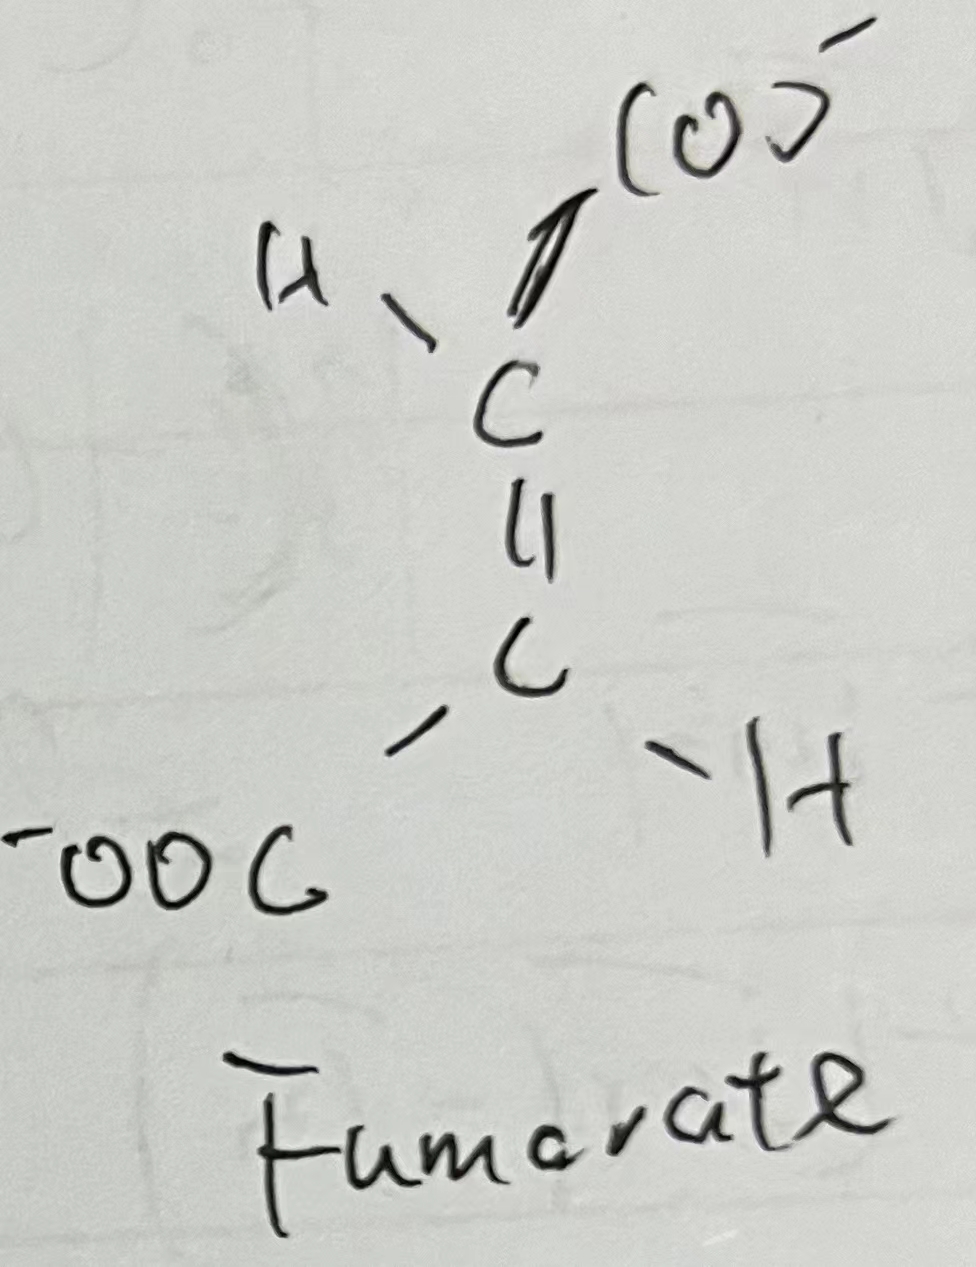 COO⁻
H
C
||
C
H
⁻OOC
Fumarate